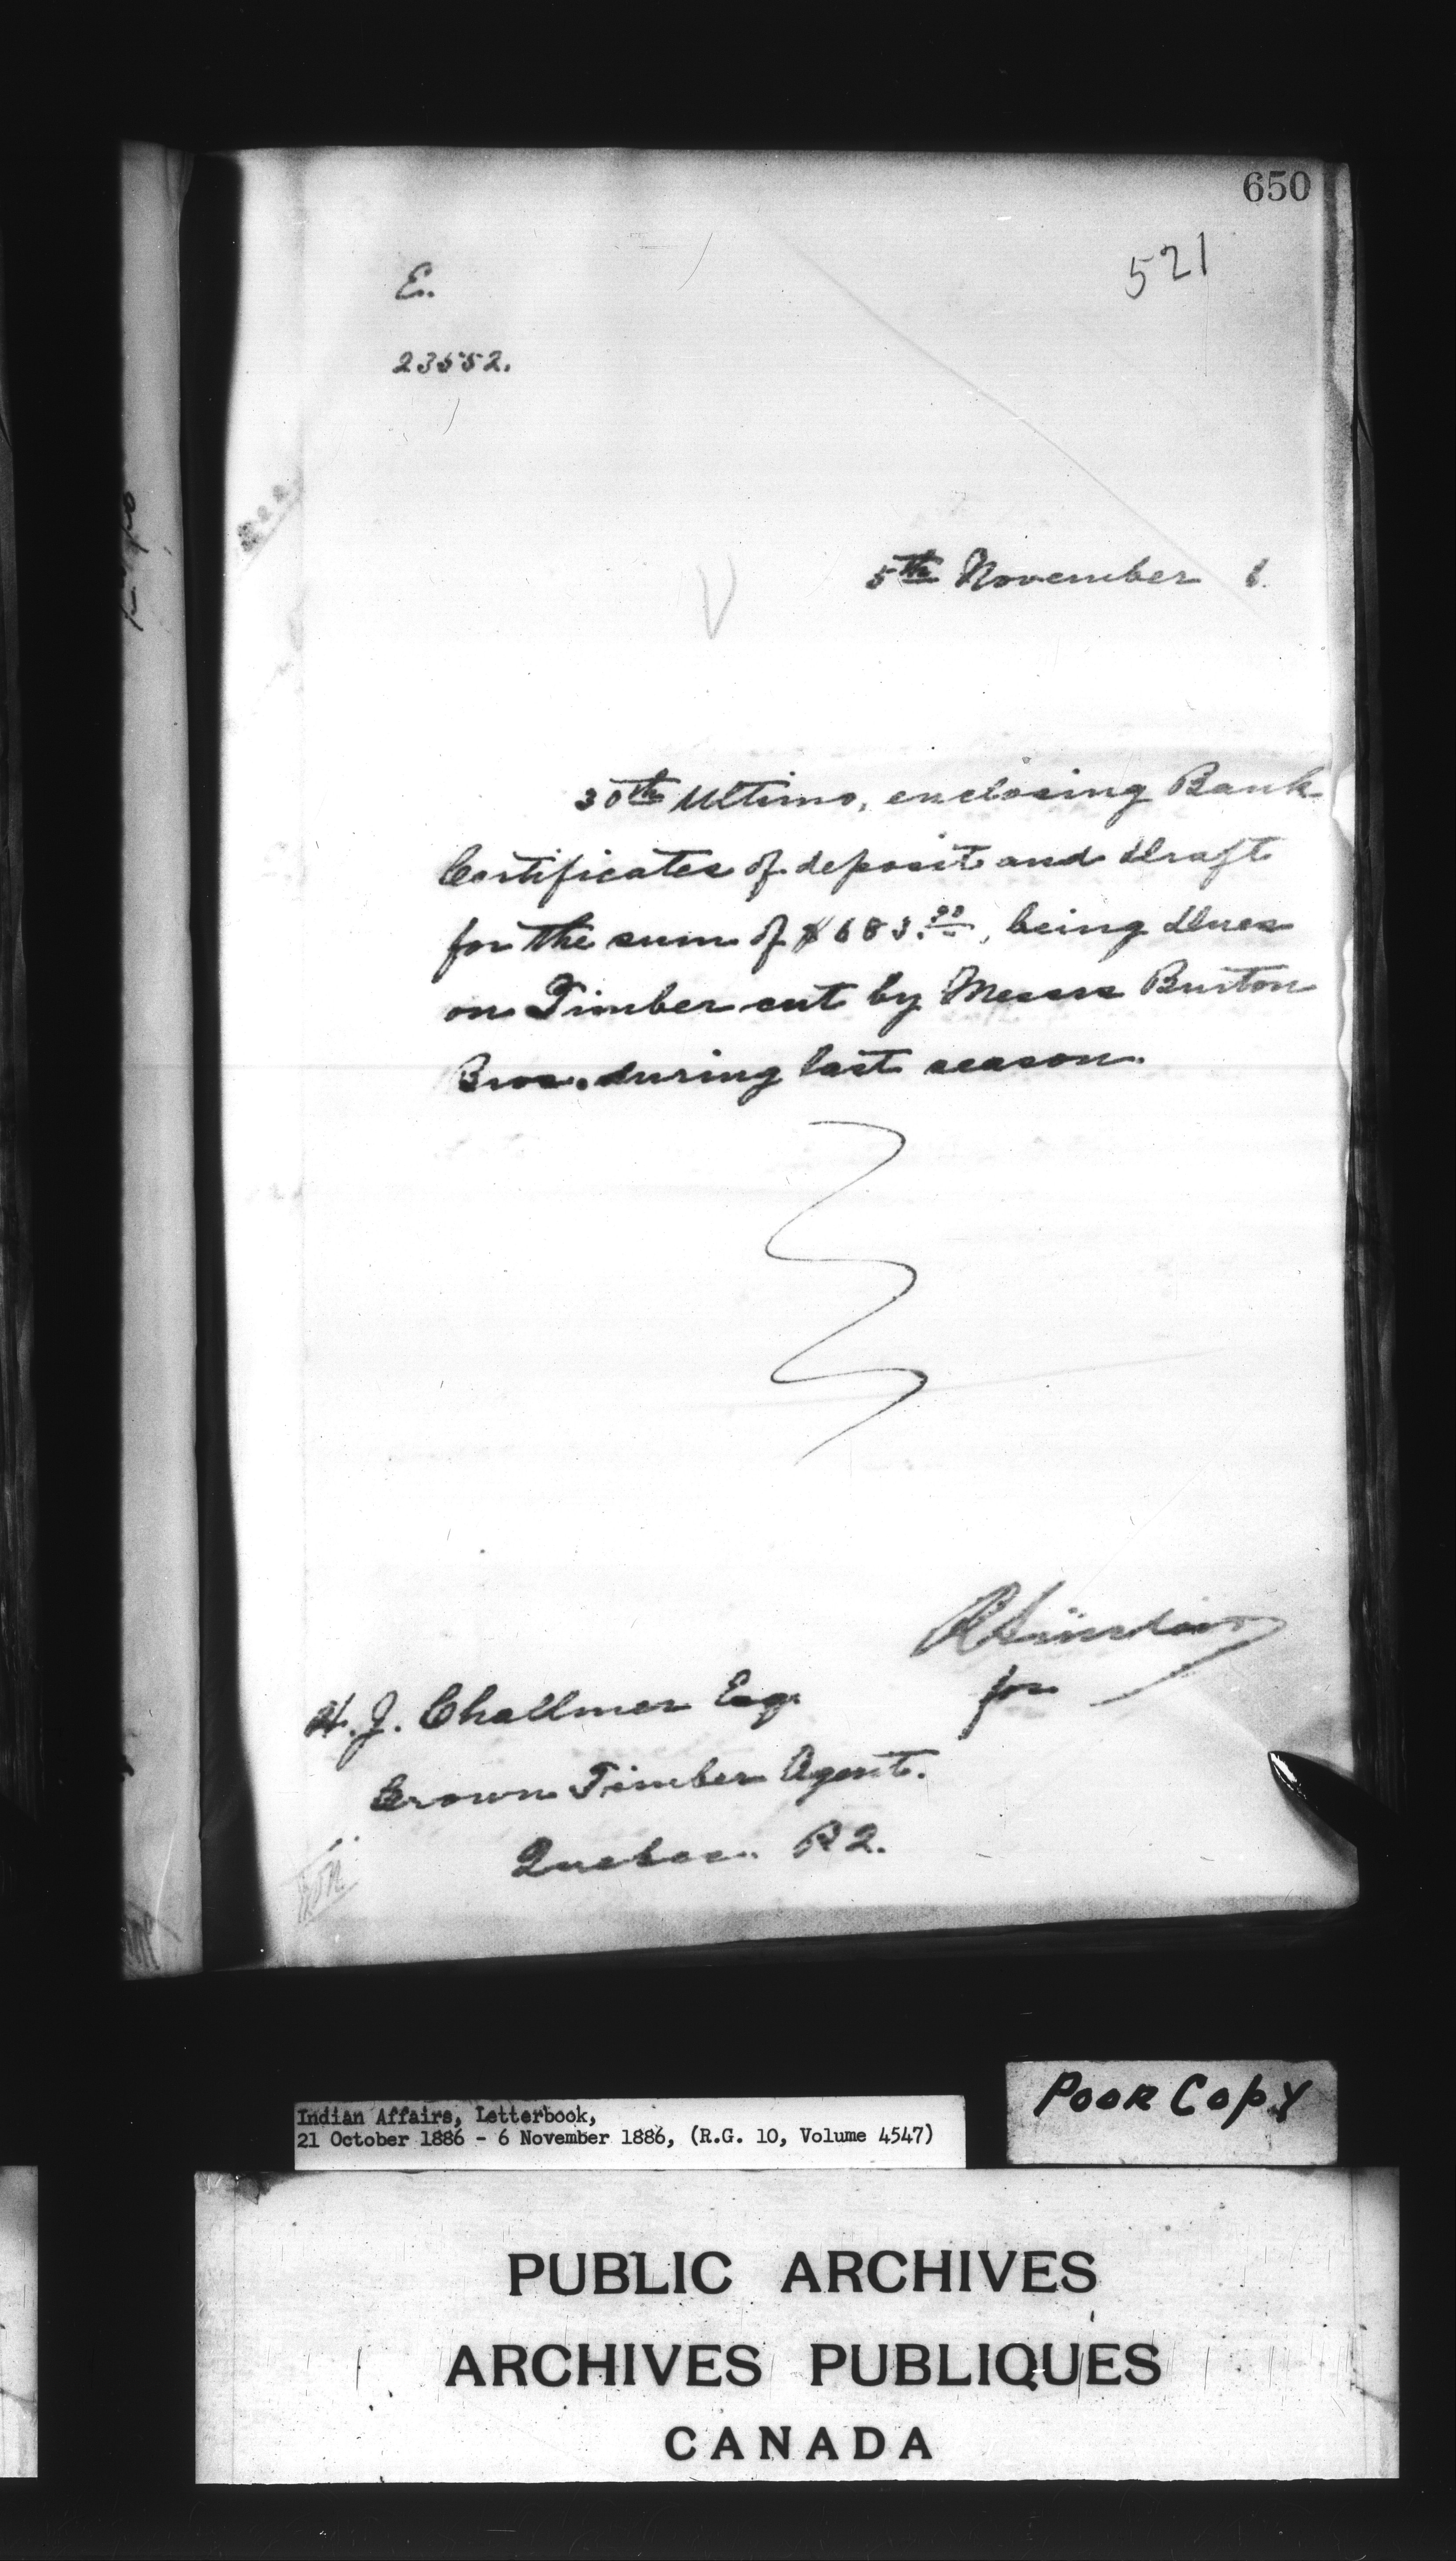 650
521
E.
23552.
5th November 6.
30th Ultimo, enclosing Bank
Certificates of deposit and draft
for the sum of $683.90, being dues
on Timber cut by Messrs Burton
Bros. during last season.
for
H. J. Challmer Esq.
Crown Timber Agent.
Quebec. P2.
Poor Copy
Indian Affairs, Letterbook,
21 October 1886 - 6 November 1886, (R.G. 10, Volume 4547)
PUBLIC ARCHIVES
ARCHIVES PUBLIQUES
CANADA